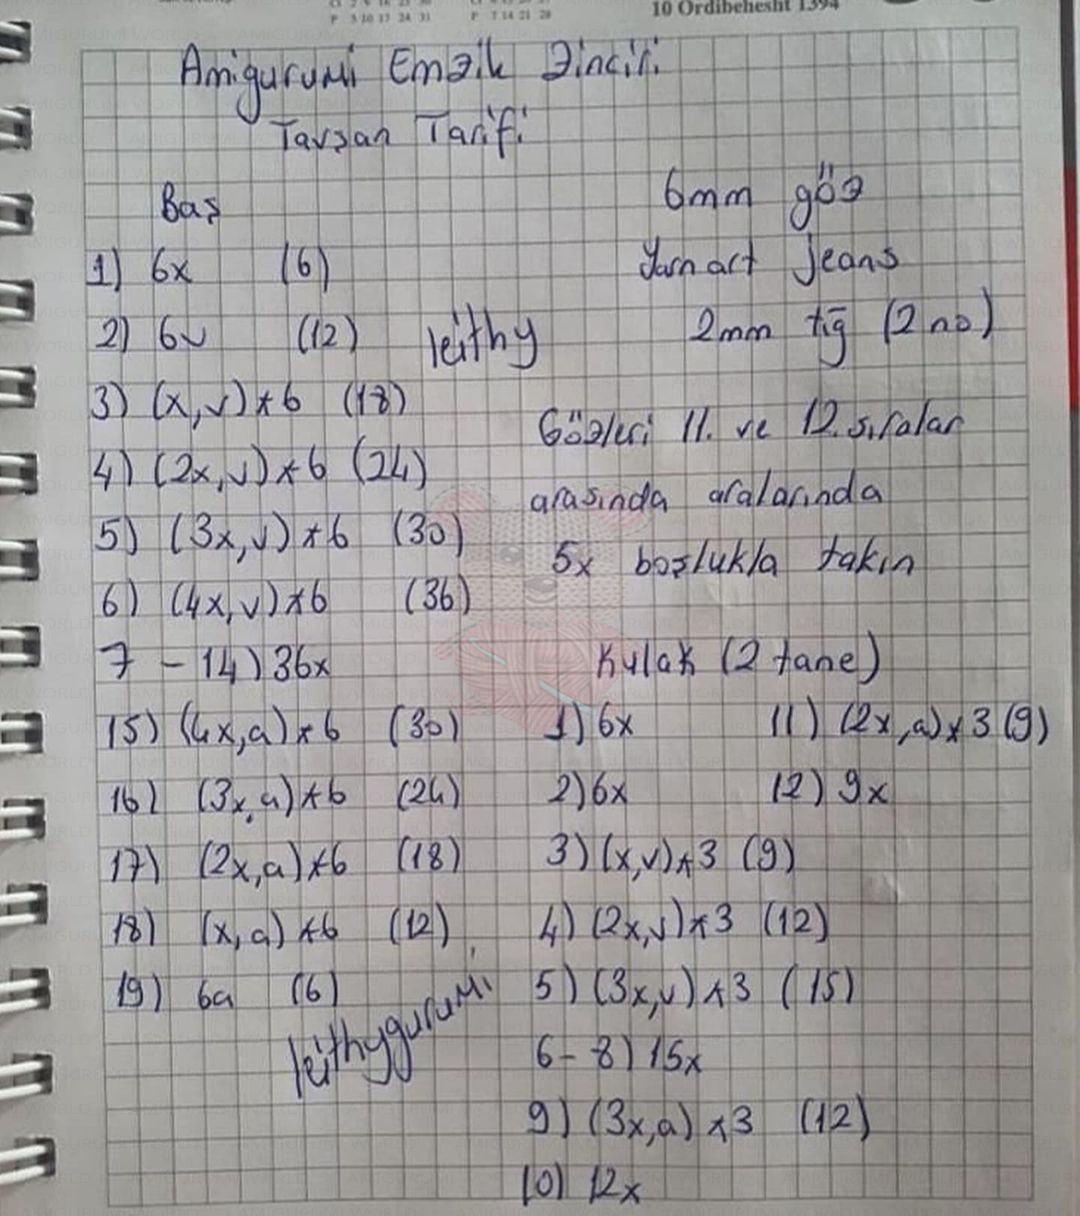 10 Ordibehesht 1394
P 3 10 17 24 31
P 7 14 21 28
Amigurumi Emzik Zinciri
Tavşan Tarifi
Baş
1) 6x (6)
2) 6v (12)
3) (x,v)*6 (18)
4) (2x,v)*6 (24)
5) (3x,v)*6 (30)
6) (4x,v)*6 (36)
7 - 14) 36x
15) (4x,a)*6 (30)
16) (3x,a)*6 (24)
17) (2x,a)*6 (18)
18) (x,a)*6 (12)
19) 6a (6)
leithy
leithygurumi
6mm göz
Yarnart Jeans
2mm tığ (2 no)
Gözleri 11. ve 12. sıralar
arasında aralarında
5x boşlukla takın
Kulak (2 tane)
1) 6x
2) 6x
3) (x,v)*3 (9)
4) (2x,v)*3 (12)
5) (3x,v)*3 (15)
6-8) 15x
9) (3x,a)*3 (12)
10) 12x
11) (2x,a)*3 (9)
12) 9x